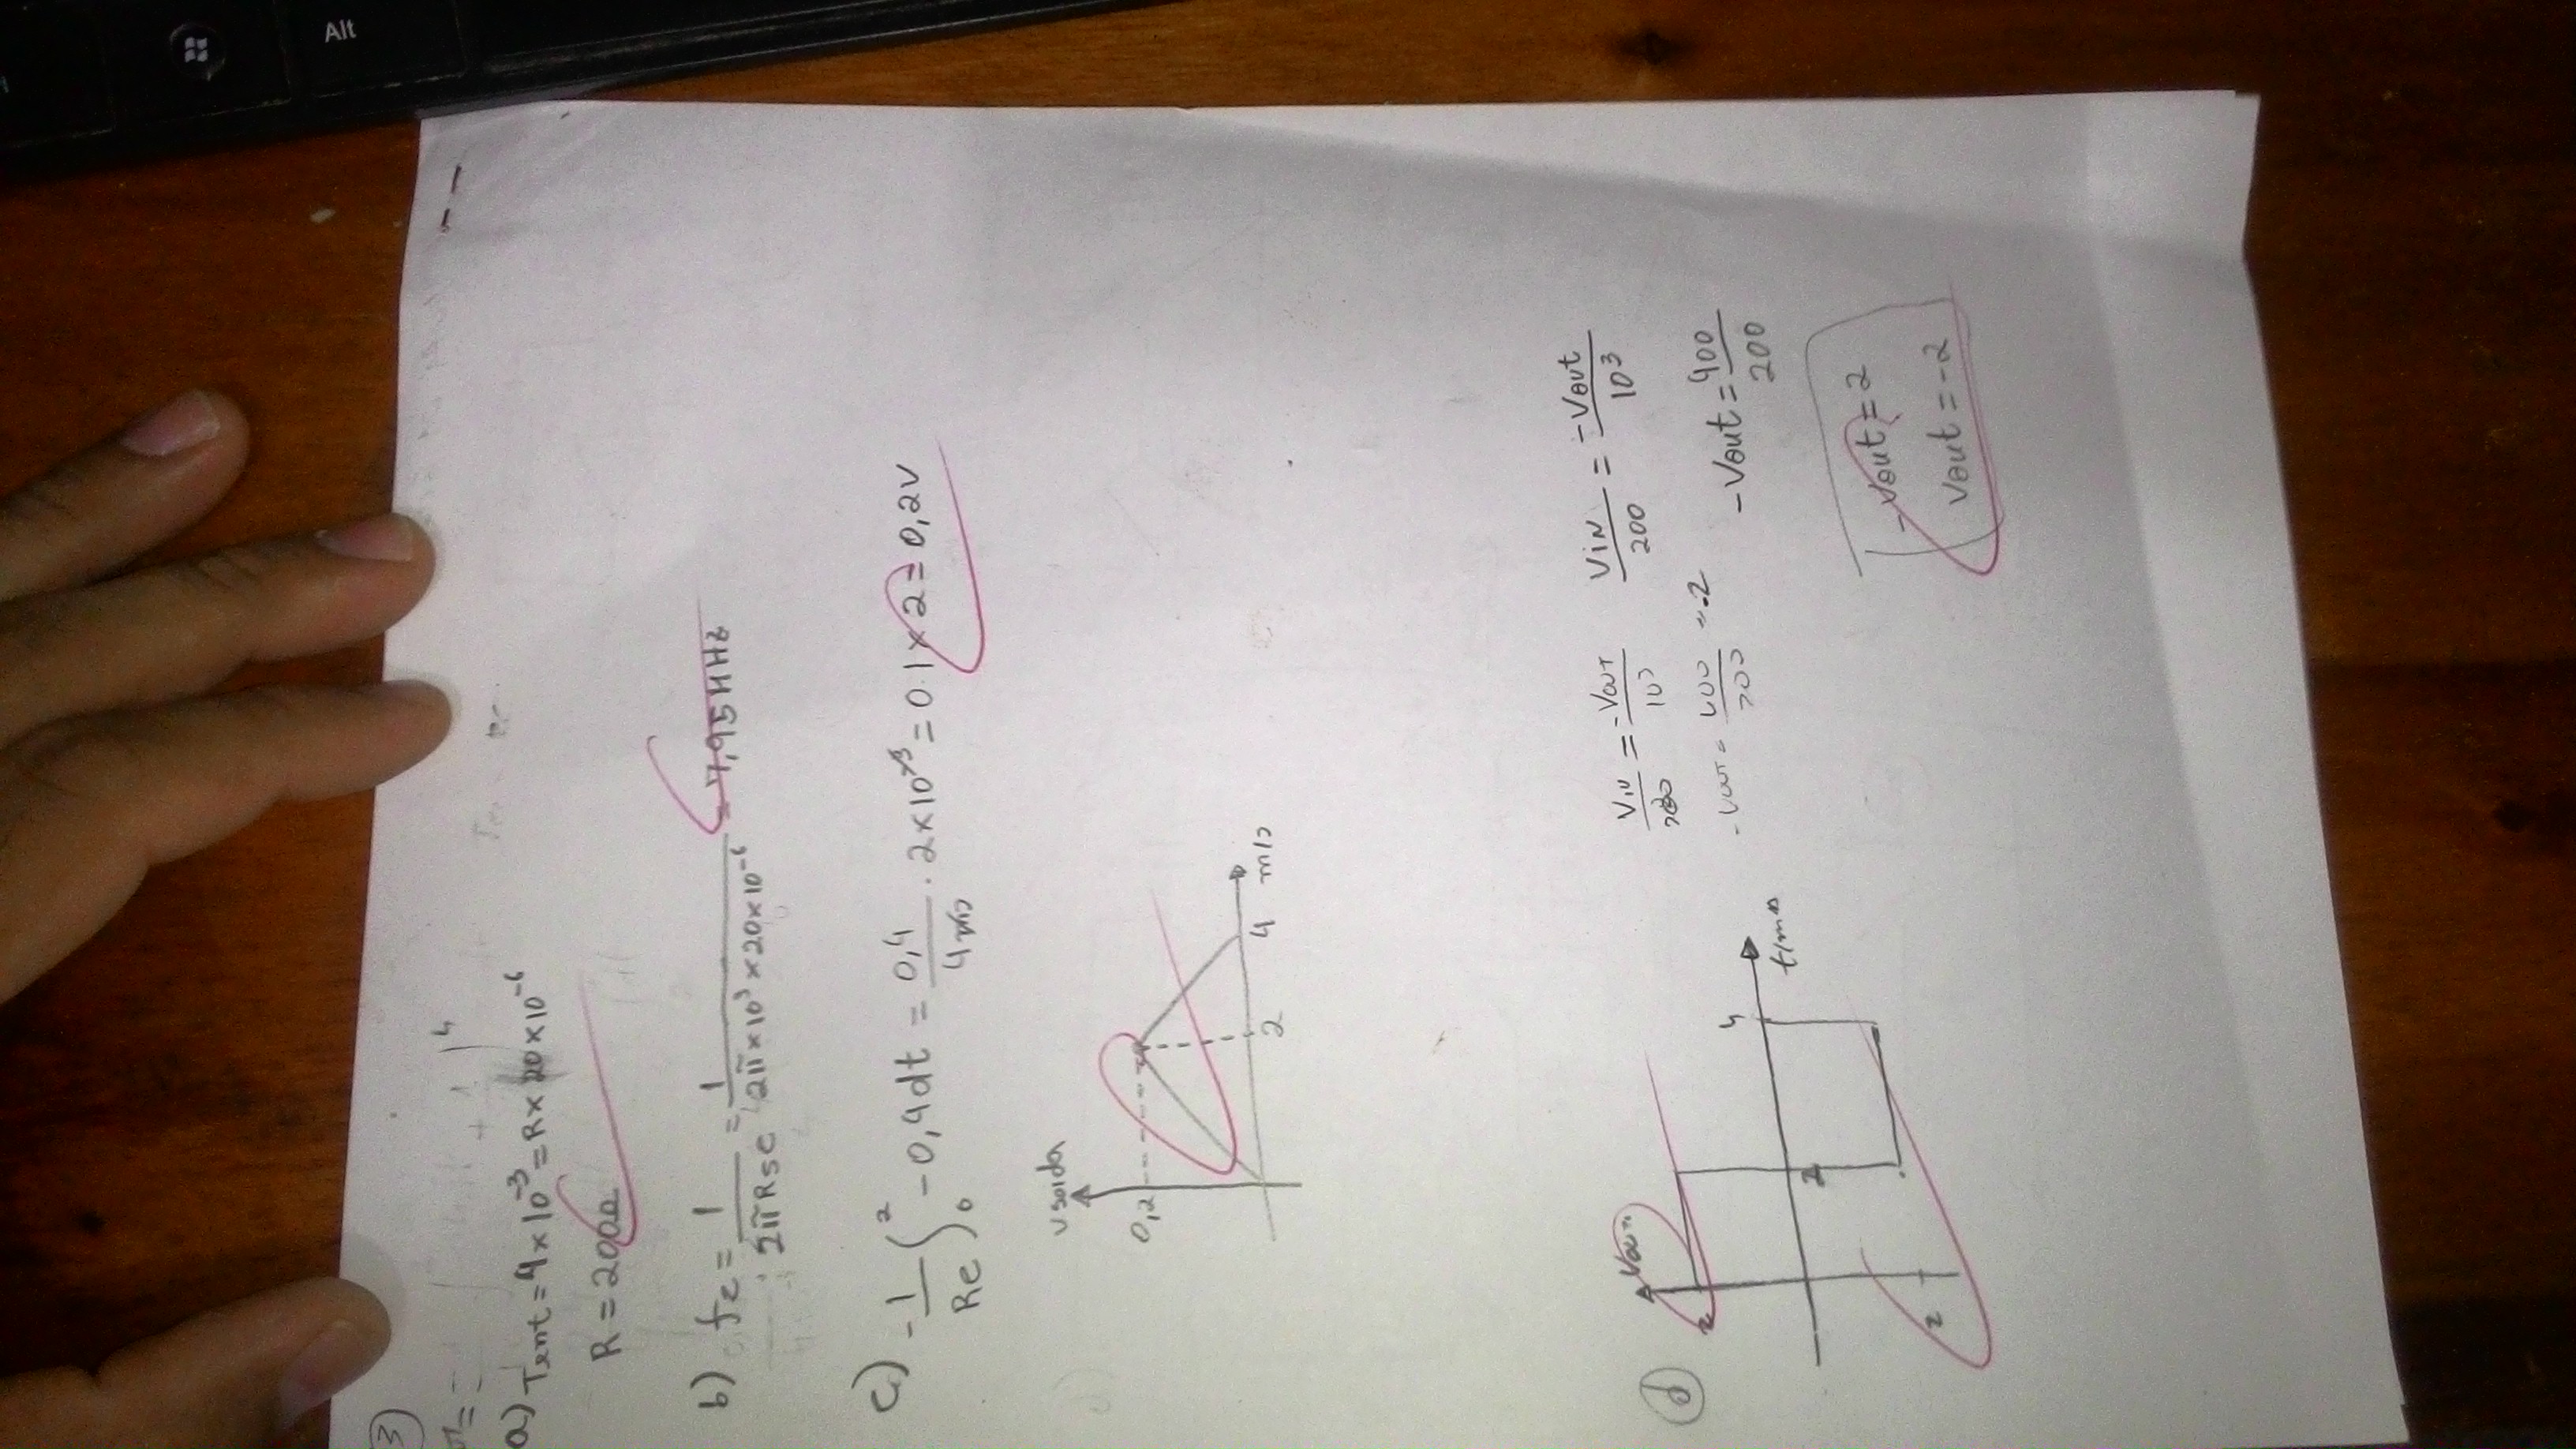 Alt
3
a) Tent = 4 x 10⁻³ = R x 20 x 10⁻⁶
R = 200Ω
b) fc = 1/2πRsc = 1/2π x 10³ x 20 x 10⁻⁶ = 7,95 HHz
c) -1/Rc ∫₀² -0,4dt = 0,4/4ms . 2x10⁻³ = 0.1 x 2 = 0,2V
Vsaida
0,2
2
4
ms
d
Vout
2
2
4
t/ms
2
Vin/200 = -Vout/10³
Vin/200 = -Vout/10³
-Vout = 400/200 = -2
-Vout = 400/200
-Vout = 2
Vout = -2